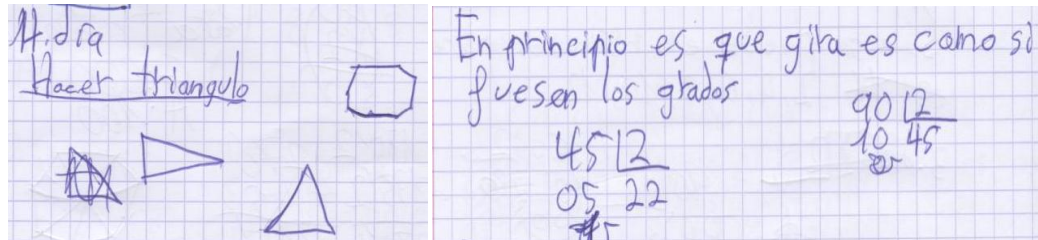 4. día
Hacer triangulo
En principio es que gira es como si
fuesen los grados
90 2
10 45
45 2
05 22